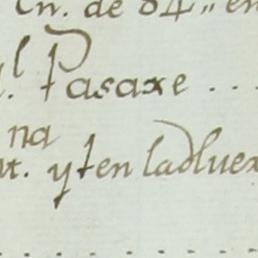 Cn. de 84,, en
l. Pasaxe ...
na
t. y ten ladluex